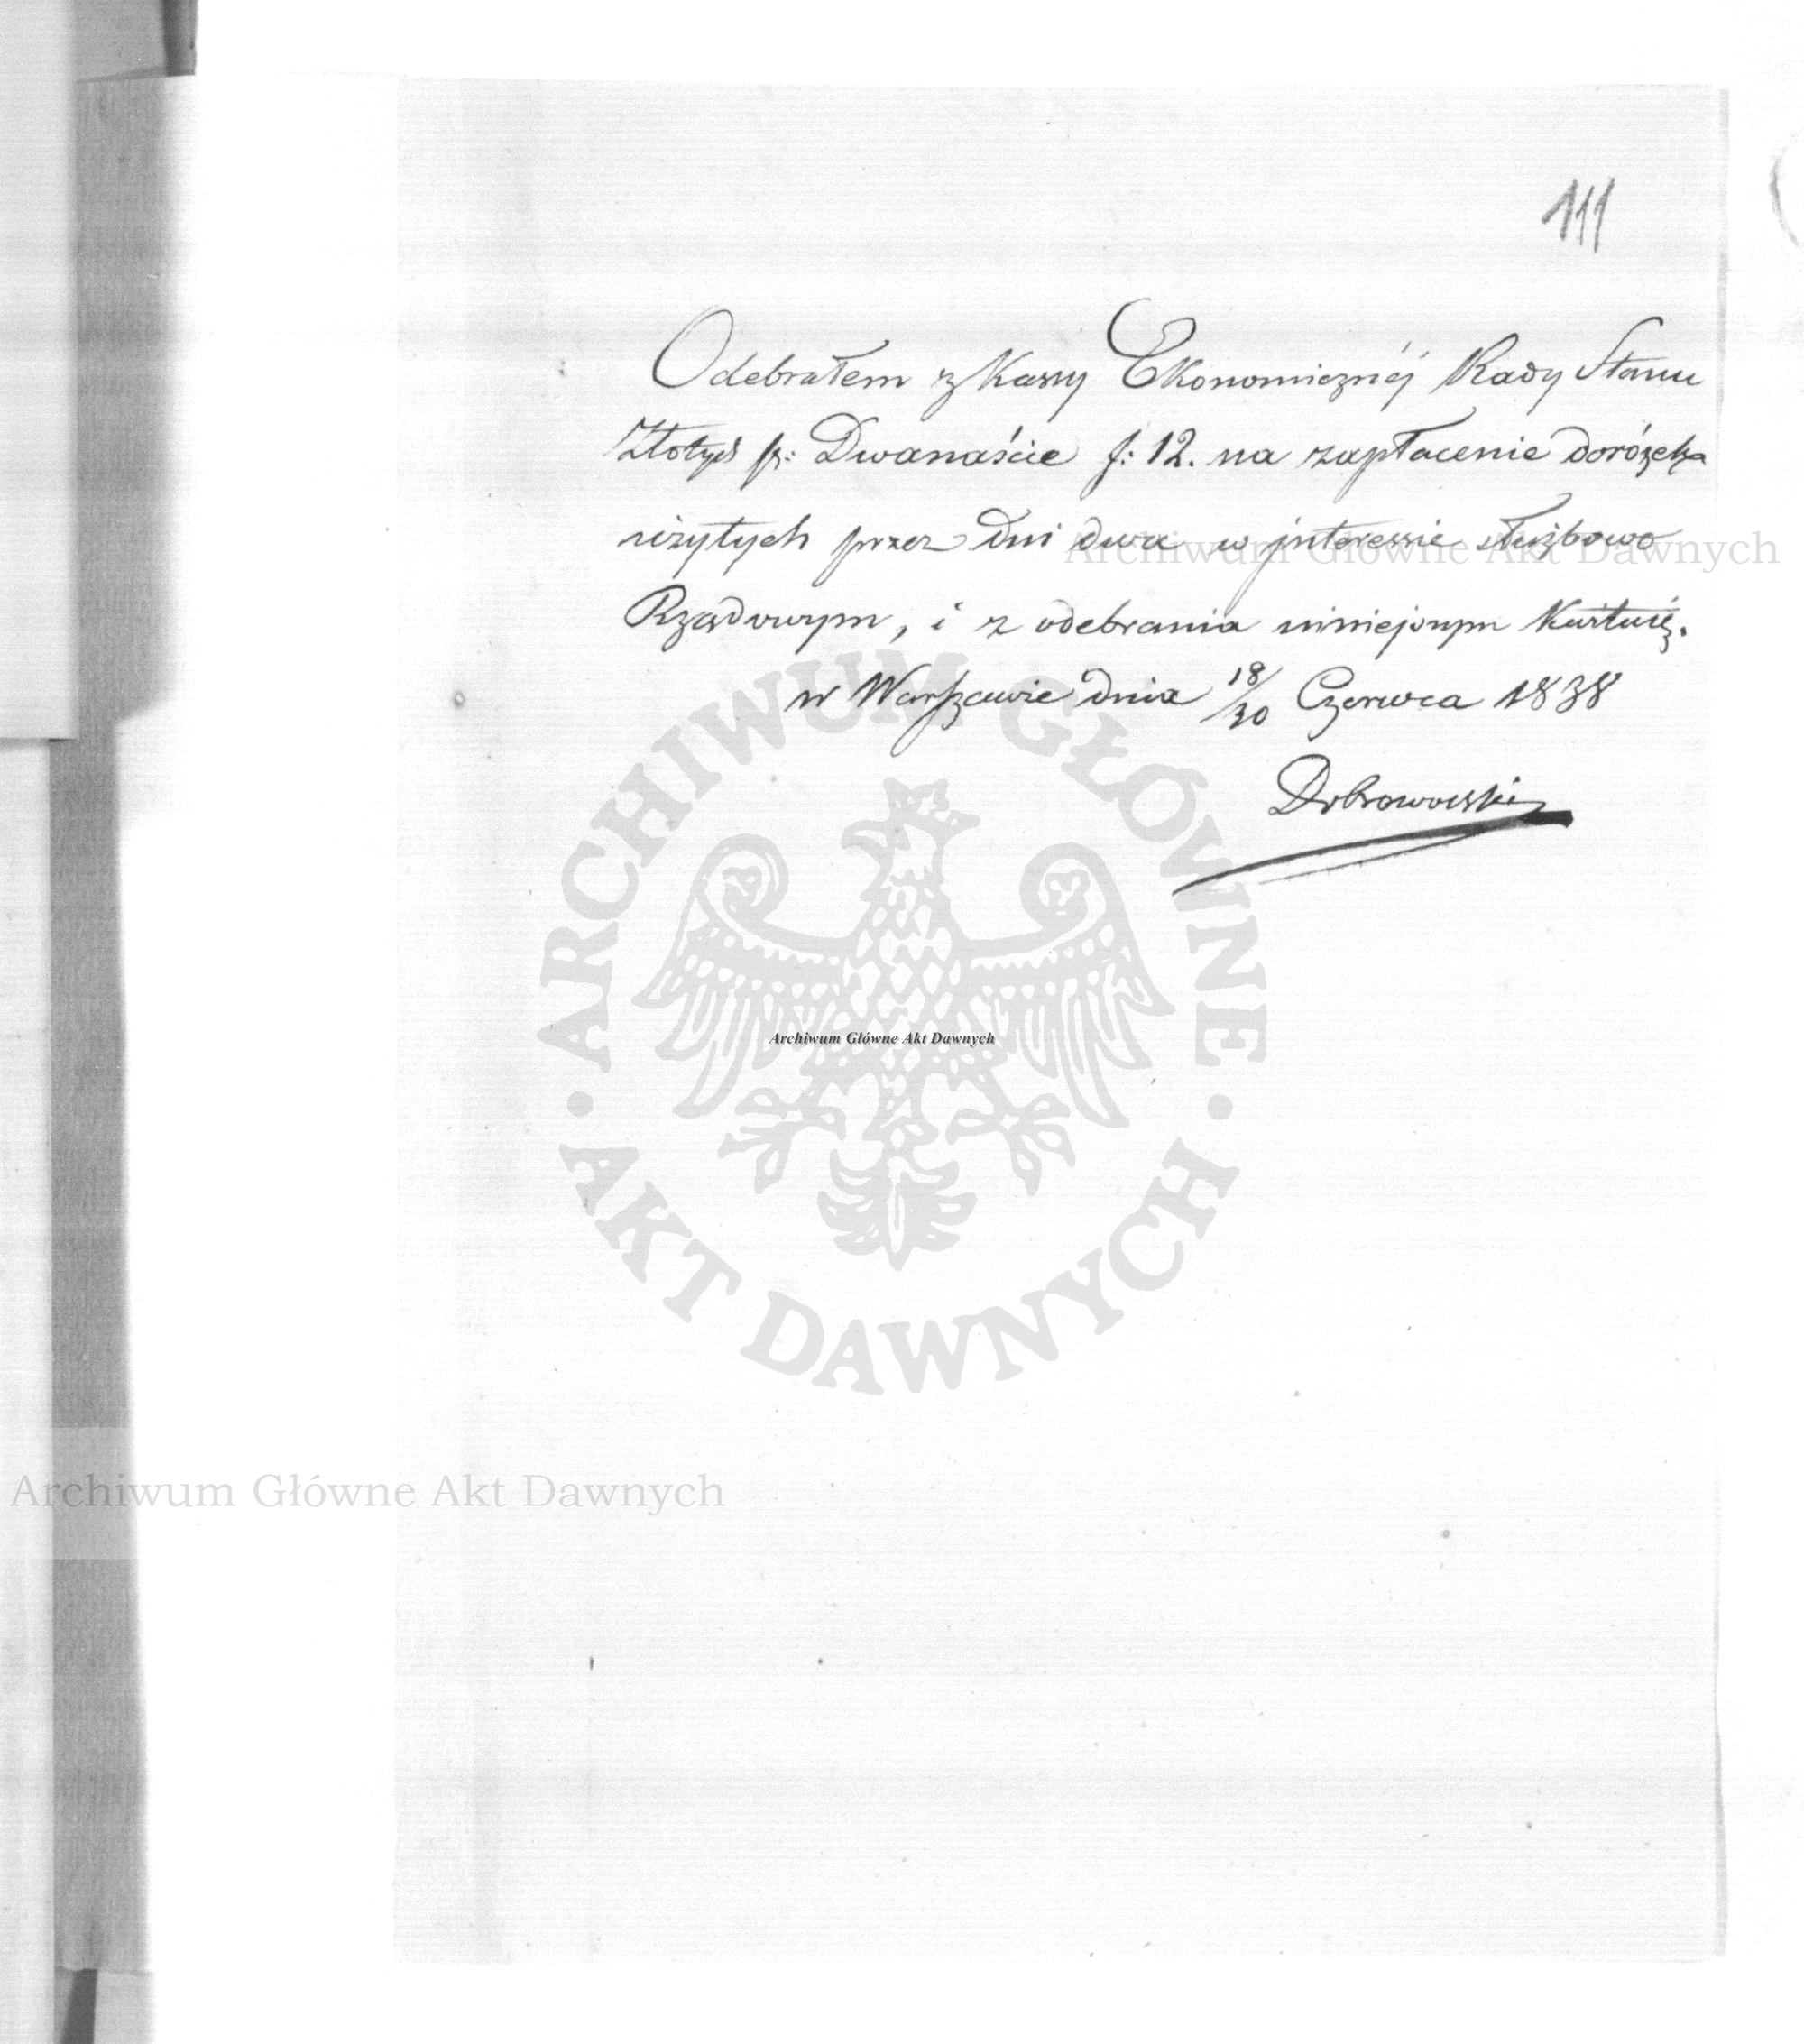 111
Odebrałem z Kassy Ekonomicznéj Rady Stanu
Złotych p: Dwanaście f: 12. na zapłacenie dorożek
użytych przez dni dwa w interessie służbowo
Archiwum Główne Akt Dawnych
Rządowym, i z odebrania niniejszym Kwituię.
w Warszawie dnia 18/30 Czerwca 1838
Dobrowolski
ARCHIWUM GŁÓWNE
Archiwum Główne Akt Dawnych
AKT DAWNYCH
Archiwum Główne Akt Dawnych